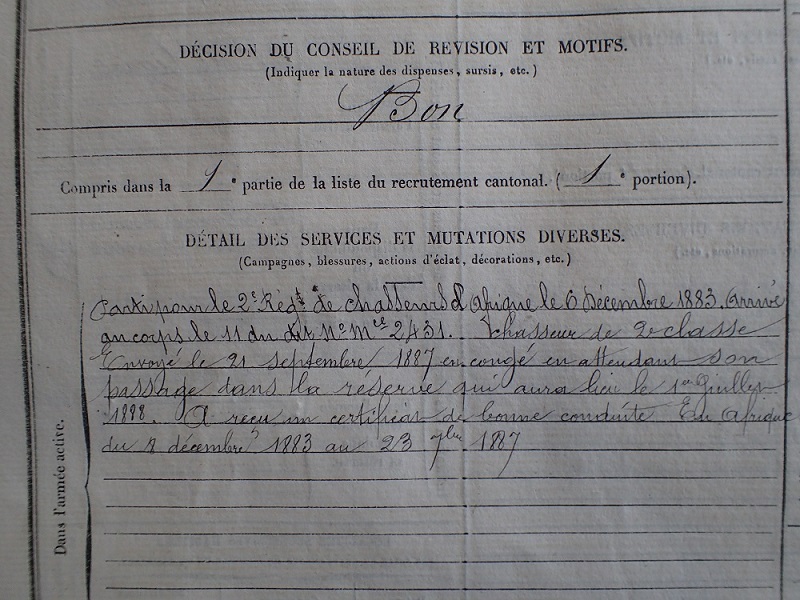 DÉCISION DU CONSEIL DE REVISION ET MOTIFS.
(Indiquer la nature des dispenses, sursis, etc.)
Bon
Compris dans la 1e partie de la liste du recrutement cantonal. (1e portion).
DÉTAIL DES SERVICES ET MUTATIONS DIVERSES.
(Campagnes, blessures, actions d'éclat, décorations, etc.)
Parti pour le 2e Régt de chasseurs d'Afrique le 6 Décembre 1883. Arrivé
au corps le 11 du dit No Mle 2431. Chasseur de 2e classe
Envoyé le 21 septembre 1887 en congé en attendant son
passage dans la réserve qui aura lieu le 1er Juillet
1888. A reçu un certificat de bonne conduite En Afrique
du 8 décembre 1883 au 23 7bre 1887
Dans l'armée active.